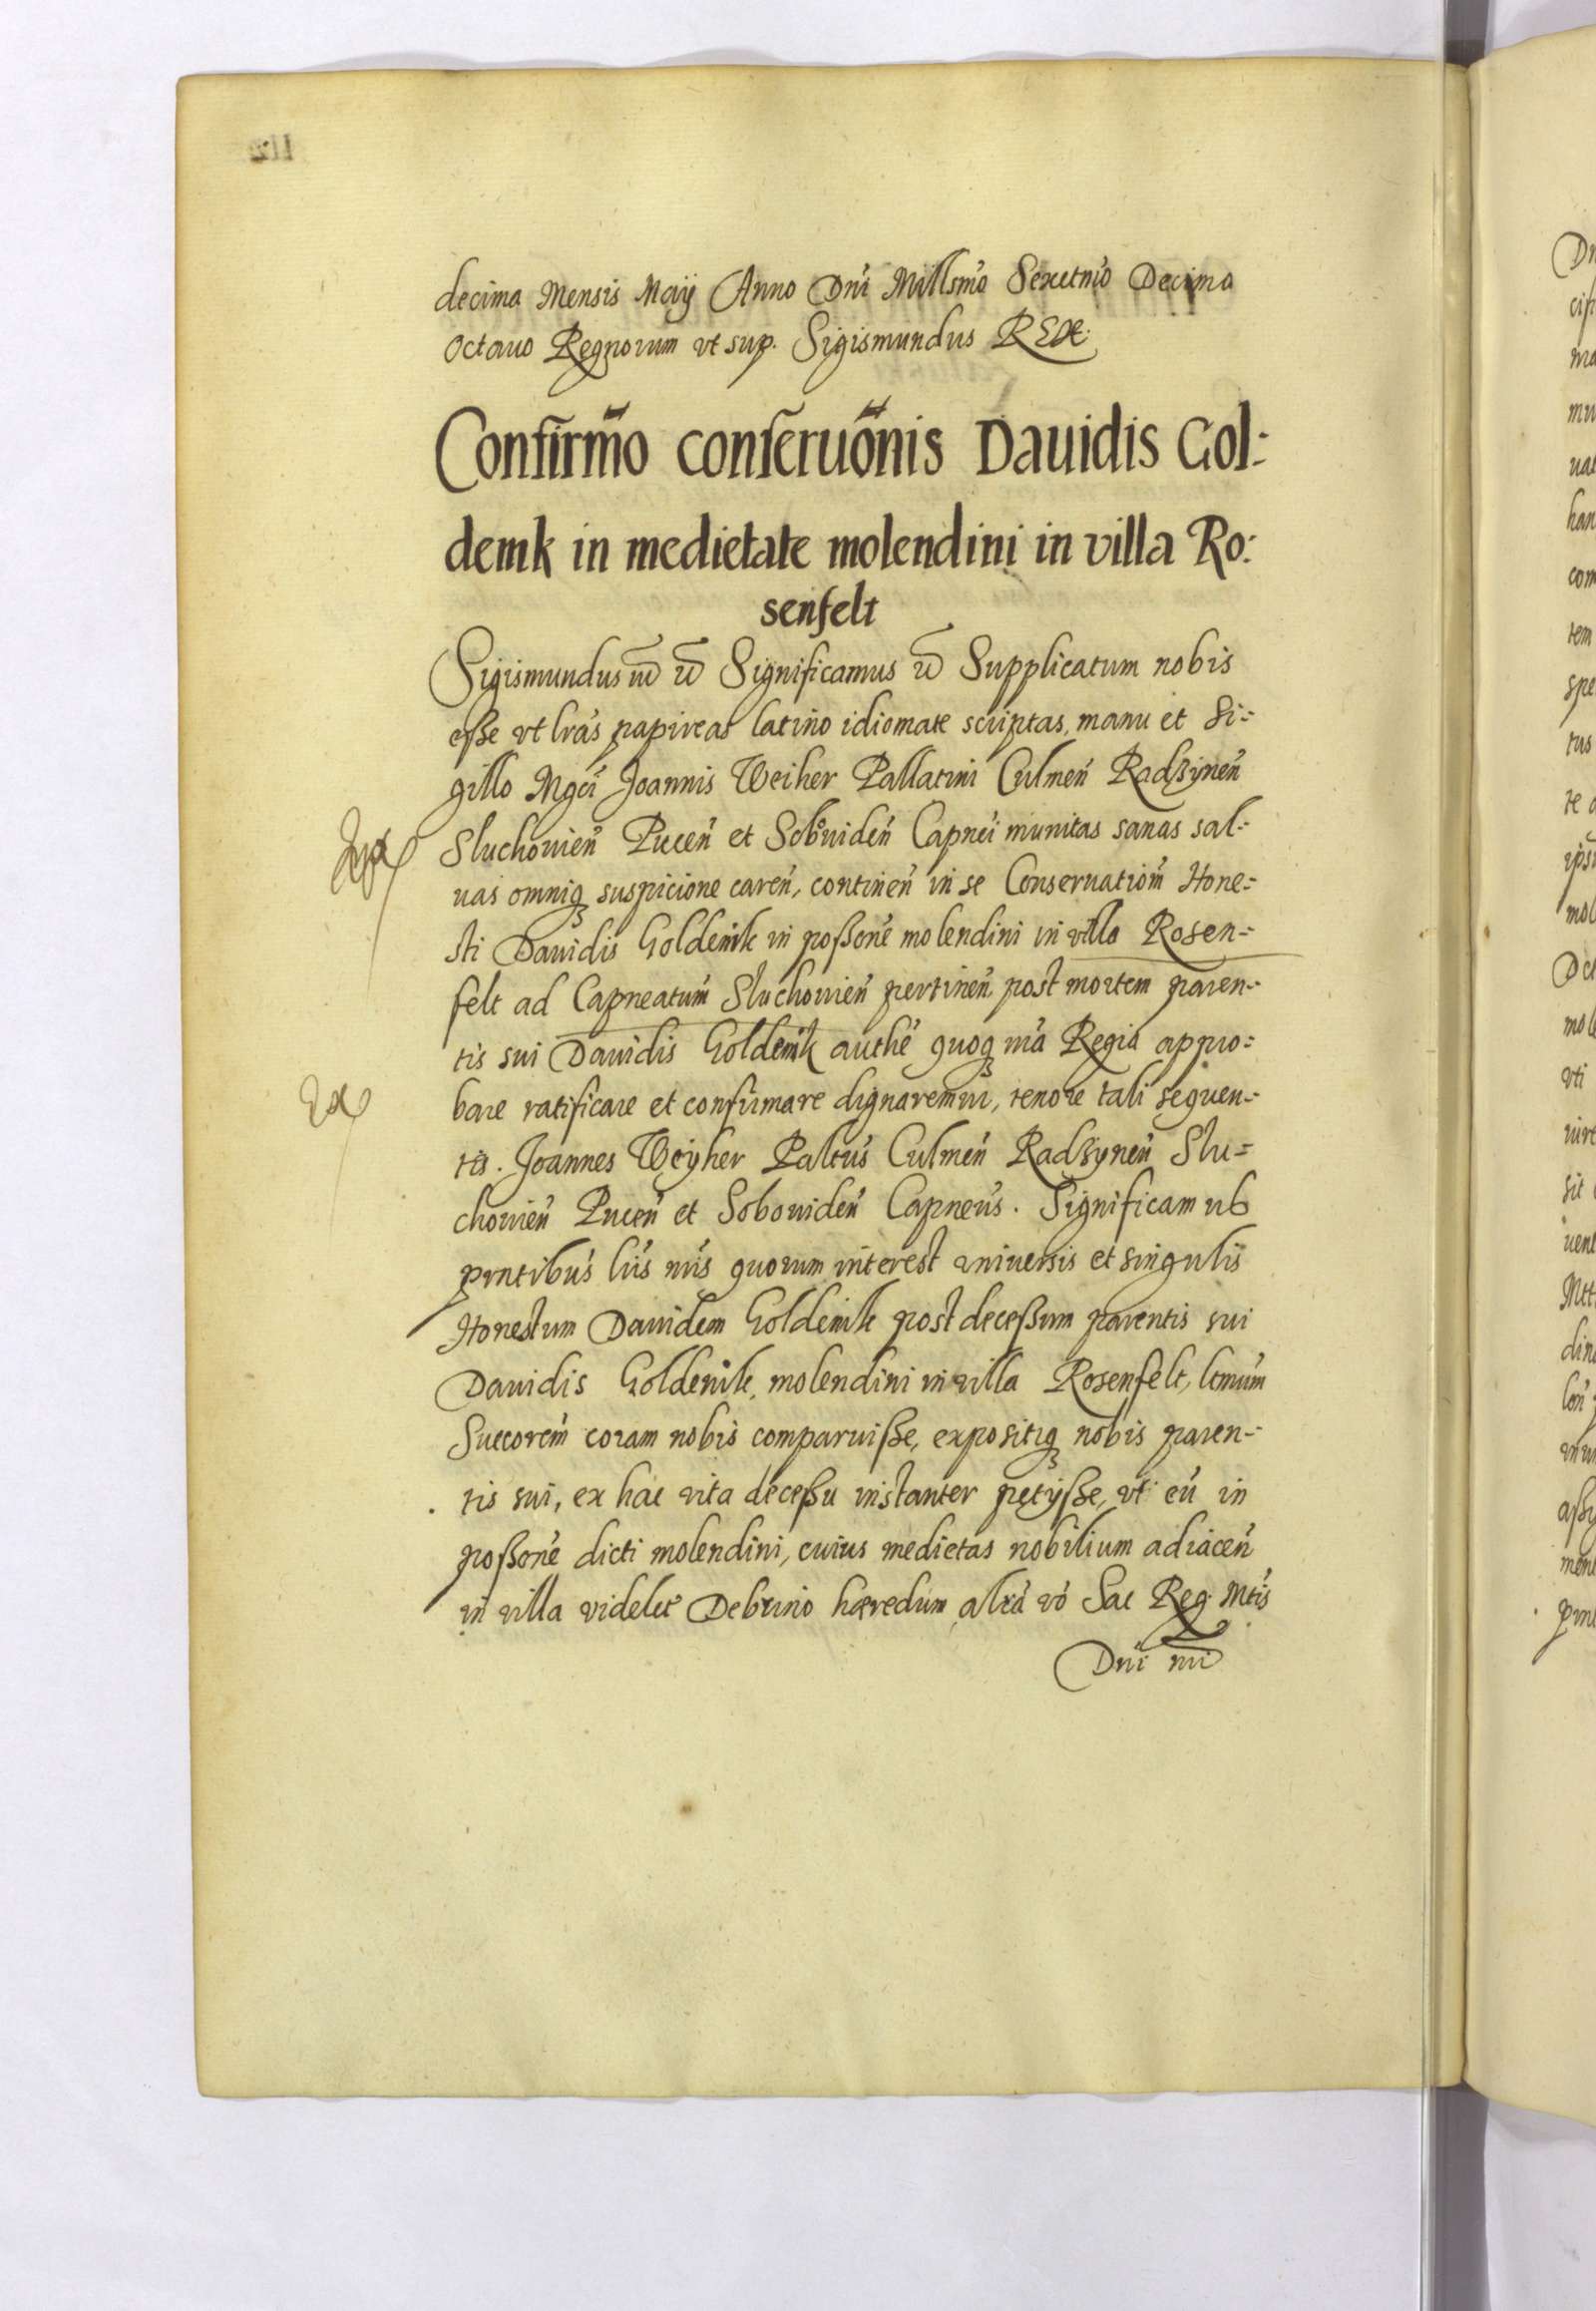 decima Mensis Maij Anno Dni Millsmo Sexctmo Decimo
Octauo Regnorum vt sup. Sigismundus REX.
Confirmo conseruonis Dauidis Gol:
demk in medietate molendini in villa Ro:
senfelt
Sigismundus Significamus Supplicatum nobis
esse vt lras papireas latino idiomate scriptas, manu et Si-
gillo Mgci Joannis Weiher Pallatini Culmen Radzynen
Sluchouien Pucen et Sobouiden Capnei munitas sanas sal-
uas omniq suspicione caren, continen in se Conseruationem Hone-
sti Dauidis Goldemk in possone molendini in villa Rosen-
felt ad Capneatum Sluchouien pertinen post mortem paren-
tis sui Dauidis Goldemk authe quoq nra Regia appro-
bare ratificare et confirmare dignaremur, tenore tali sequen-
tis. Joannes Weyher Paltus Culmen Radzynen Slu-
chouien Pucen et Sobouiden Capneus. Significamus
pntibus lris nris quorum interest vniuersis et singulis
Honestum Dauidem Goldemk post decessum parentis sui
Dauidis Goldemk, molendini in villa Rosenfelt, ltmum
Succorem coram nobis comparuisse, expositiq nobis paren-
tis sui, ex hac vita decessu instanter petysse, vt eu in
possone dicti molendini, cuius medietas nobilium adiacen
in villa videlct Debrino hæredum altra vo Sac Reg. Mtis
Dni nri